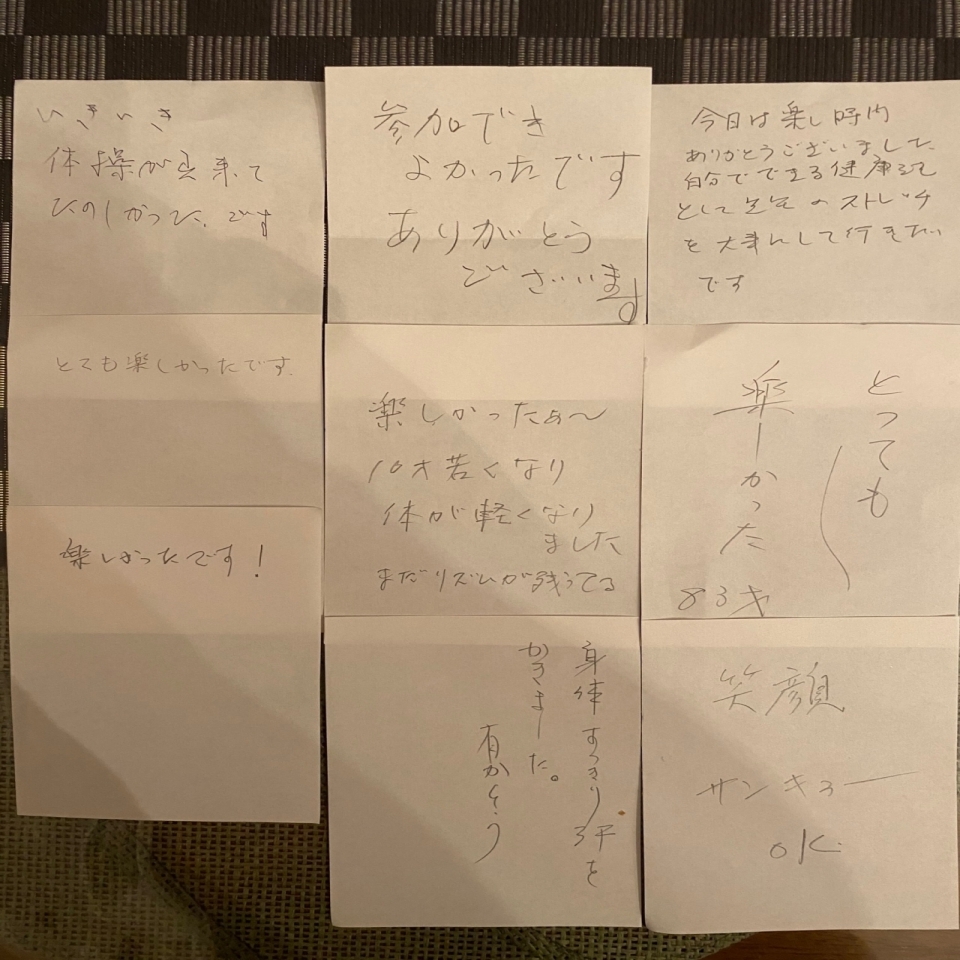 いきいき
体操が出来て
たのしかった。です
参加でき
よかったです
ありがとう
ございます
今日は楽し時内
ありがとうございました
自分でできる健康
として のストレッチ
を大事にして行きたい
です
とても楽しかったです.
楽しかったぁ～
10才若くなり
体が軽くなり
ました
まだリズムが残ってる
とっても
楽しかった
83才
楽しかったです!
身体すっきり汗を
かきました。
有がとう
笑顔
サンキュー
OK.